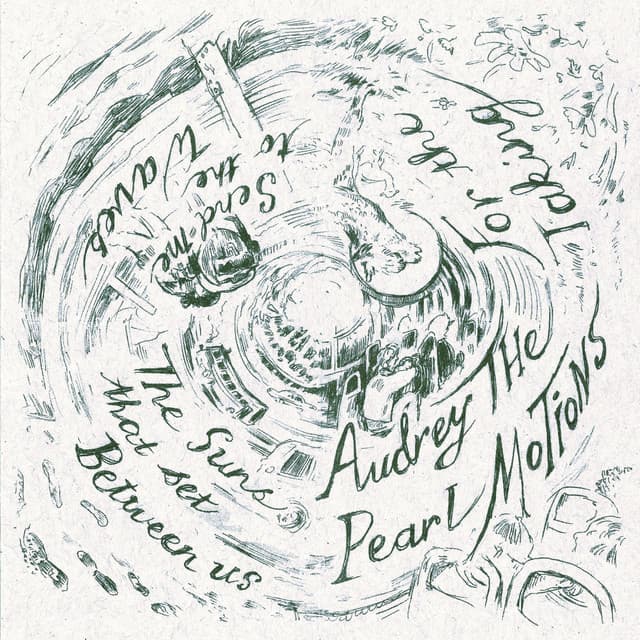 Taking
for the
Send me
to the
Waves
The Suns
that set
Between us
Audrey
Pearl
THE
MOTIONS